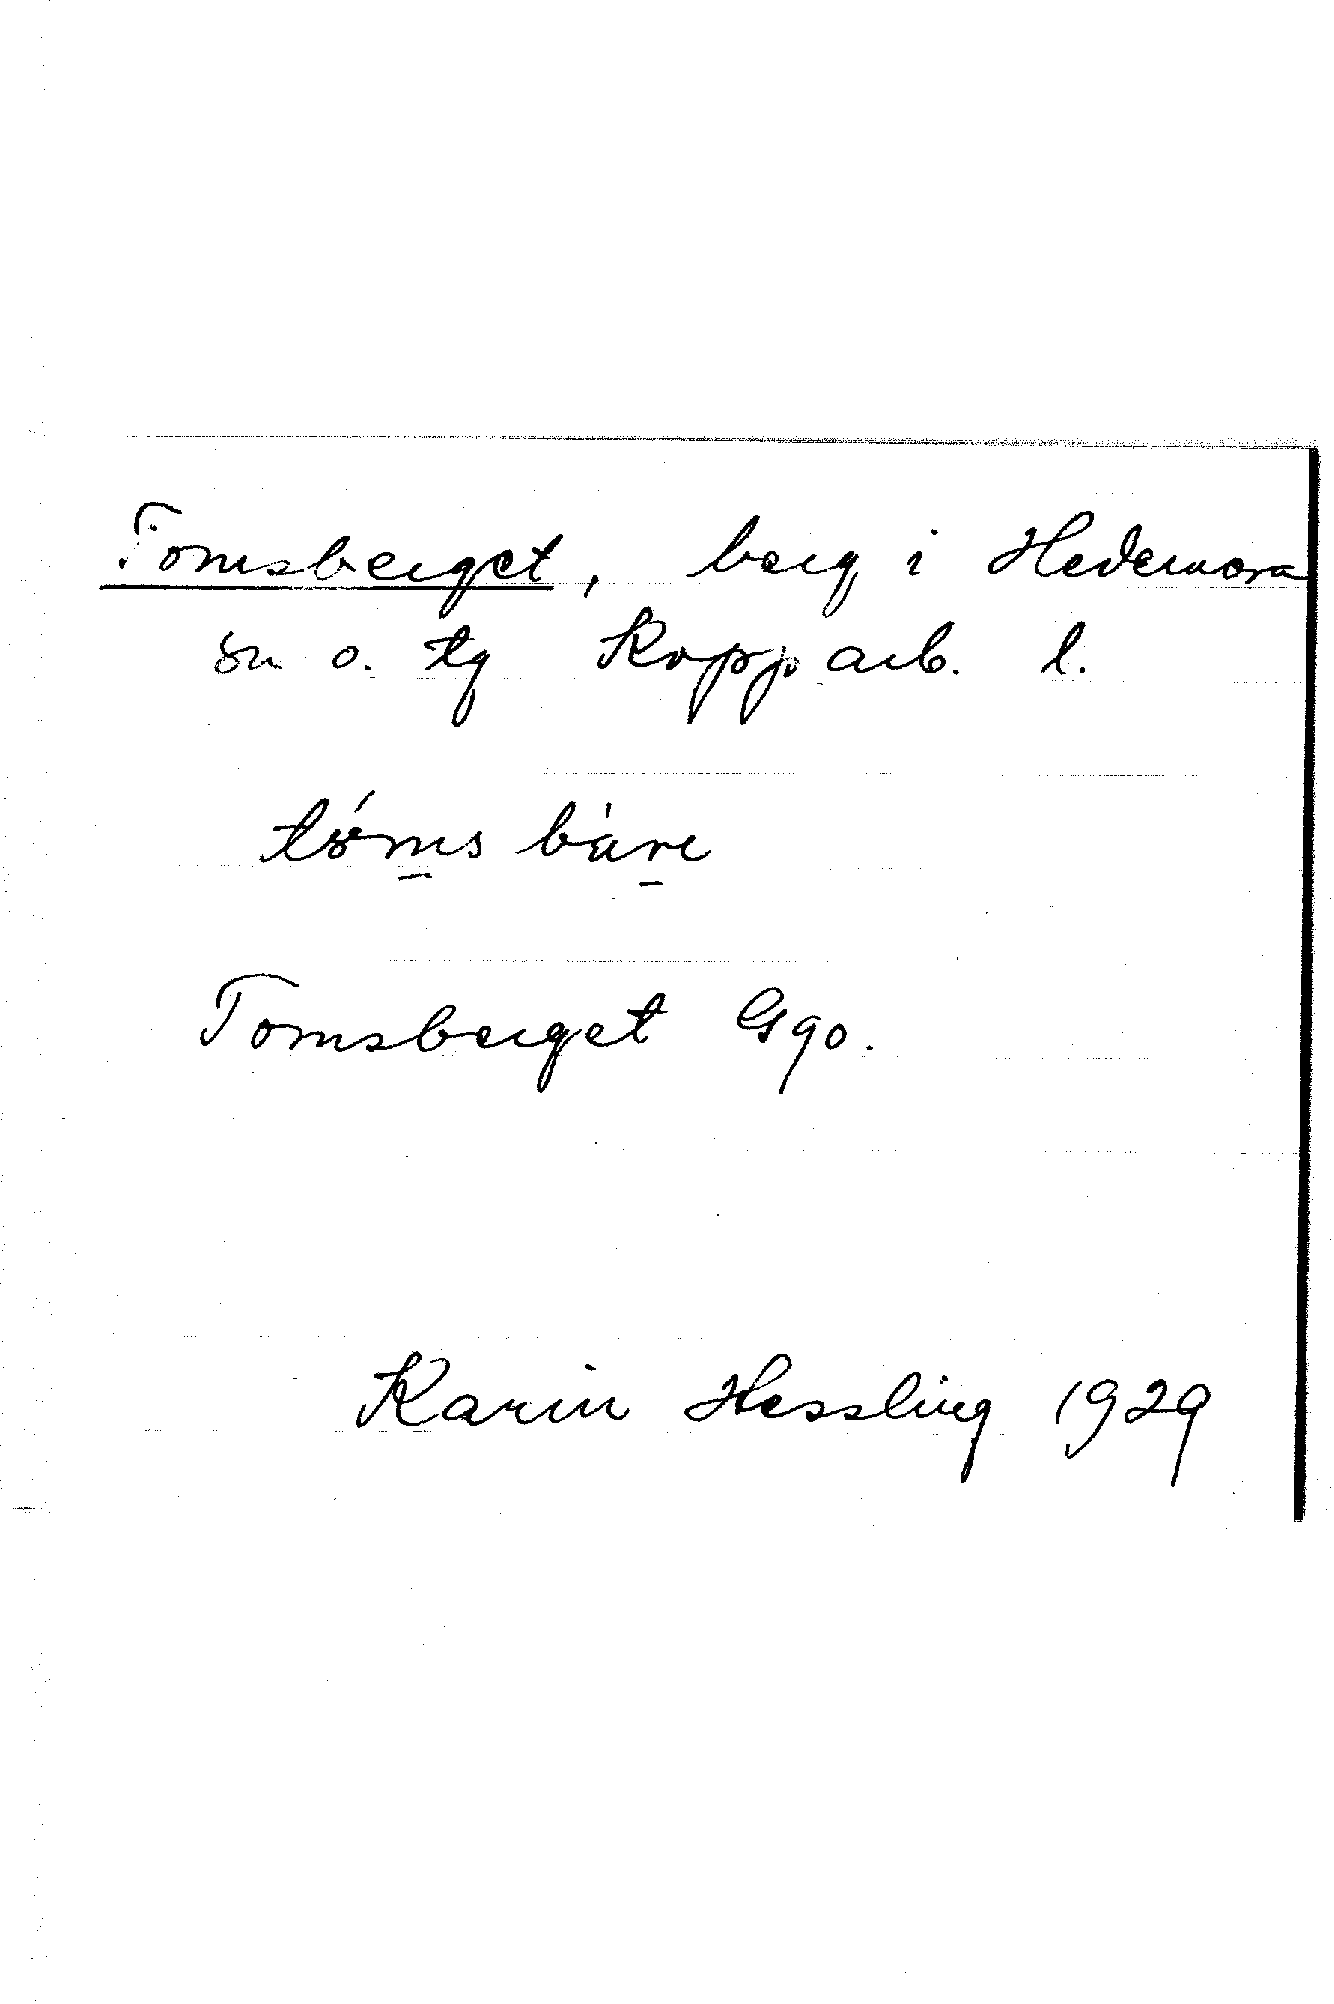 Tomsberget, berg i Hedemora
sn o. tg Kopparb. l.
Tomsberget G90.
Karin Hessling 1929